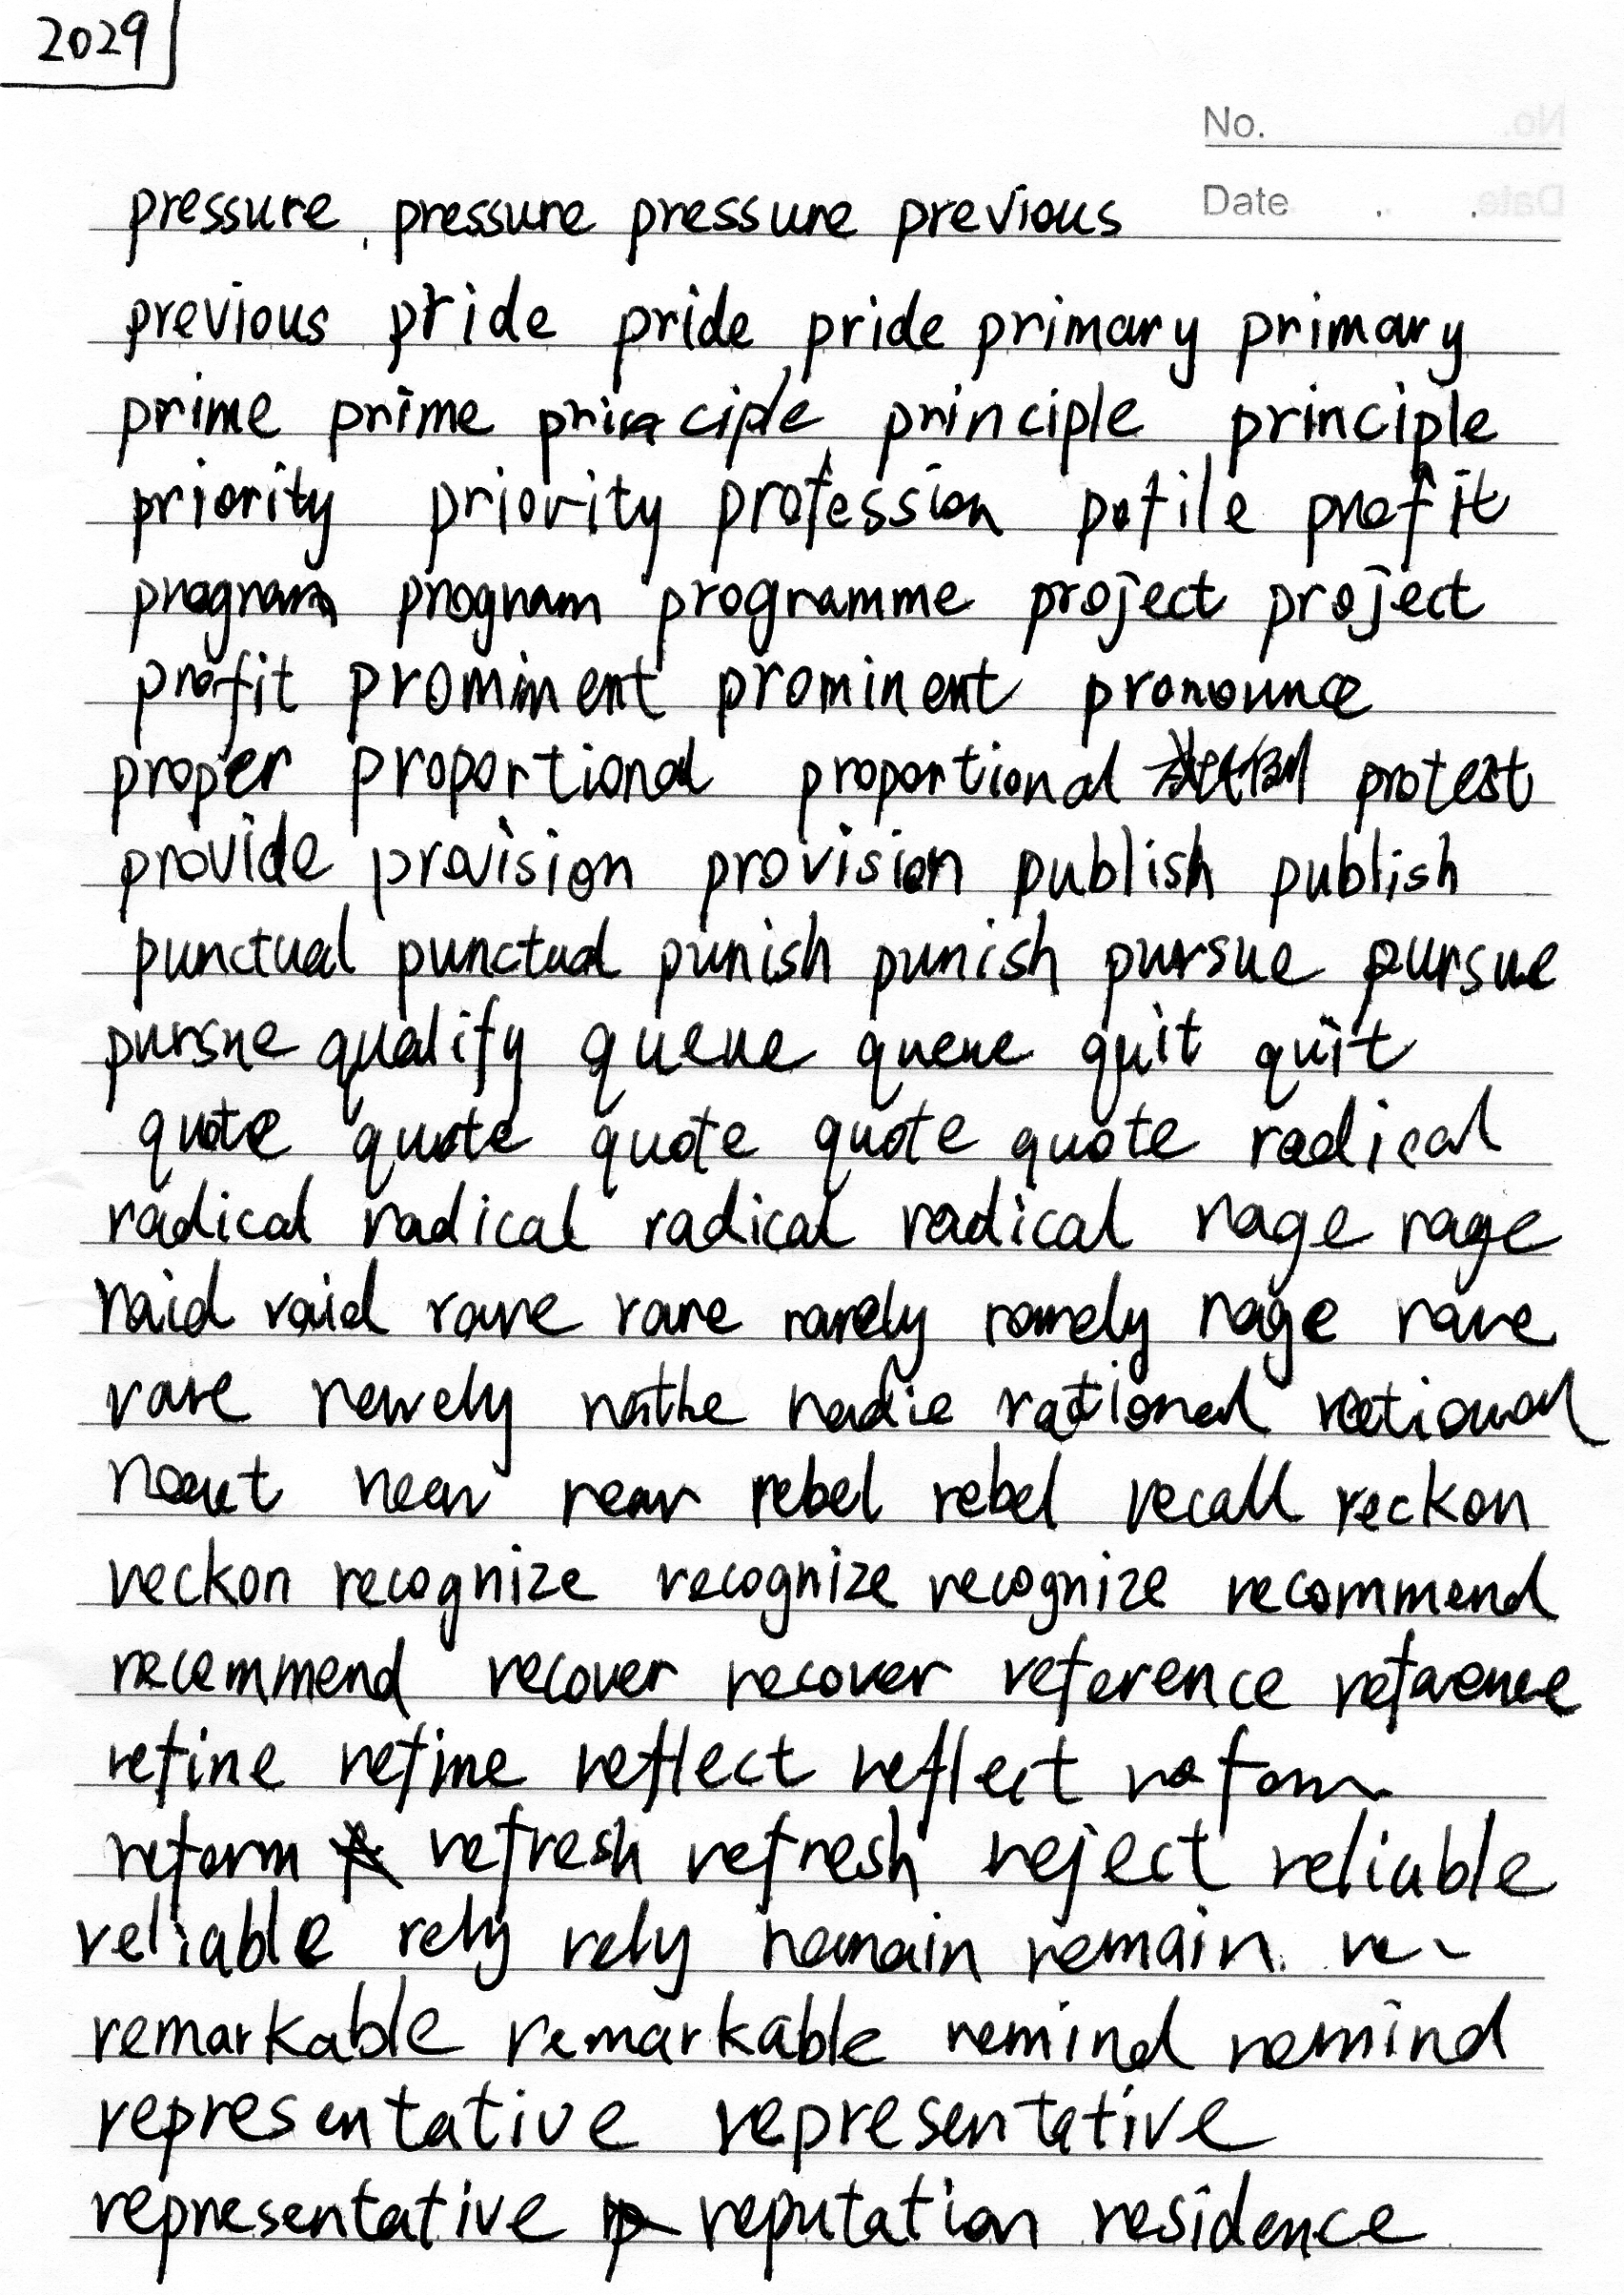 2029
No.
Date . .
pressure, pressure pressure previous
previous pride pride pride primary primary
prime prime principle principle principle
priority priority profession pofile profit
program program programme project project
profit prominent prominent pronounce
proper proportional proportional protest
provide provision provision publish publish
punctual punctual punish punish pursue pursue
pursue qualify queue queue quit quit
quote quote quote quote quote radical
radical radical radical radical rage rage
raid raid rare rare rarely rarely rage rare
rare rational rational
rear rear rebel rebel recall reckon
reckon recognize recognize recognize recommend
recommend recover recover reference reference
refine refine reflect reflect reform
reform refresh refresh reject reliable
reliable rely rely remain remain. re-
remarkable remarkable remind remind
representative representative
representative reputation residence